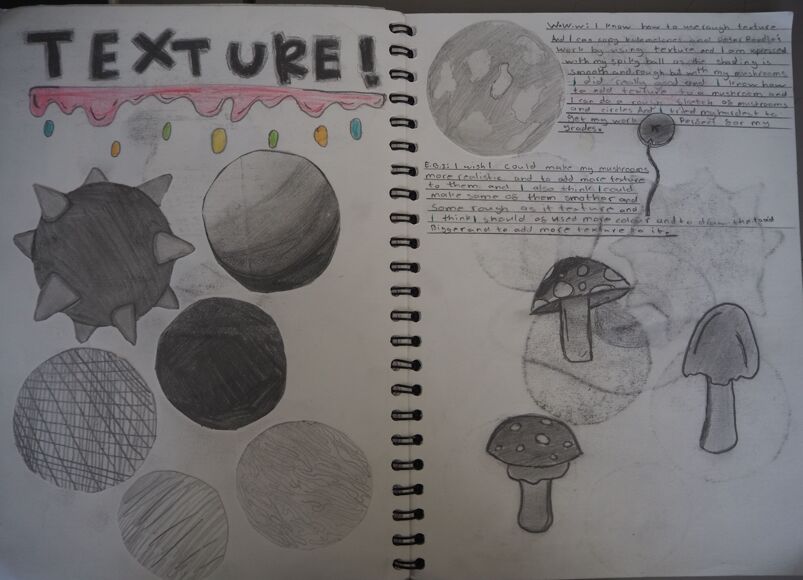 TEXTURE!
W.W.W: I know how to use rough texture
And I can copy and
work by using texture and I am
with my spiky ball as the shading is
smooth and rough but with my mushrooms
I did really good and I know how
to add texture to a mushroom and
I can do a rough sketch of mushrooms
and circles And I tried my hardest to
get my work perfect for my
grades.
E.B.I: I wish I could make my mushrooms
more realistic and to add more texture
to them and I also think I could
make some of them smother and
some rough as it texture and
I think I should of used more colour and to draw
Bigger and to add more texture to it.